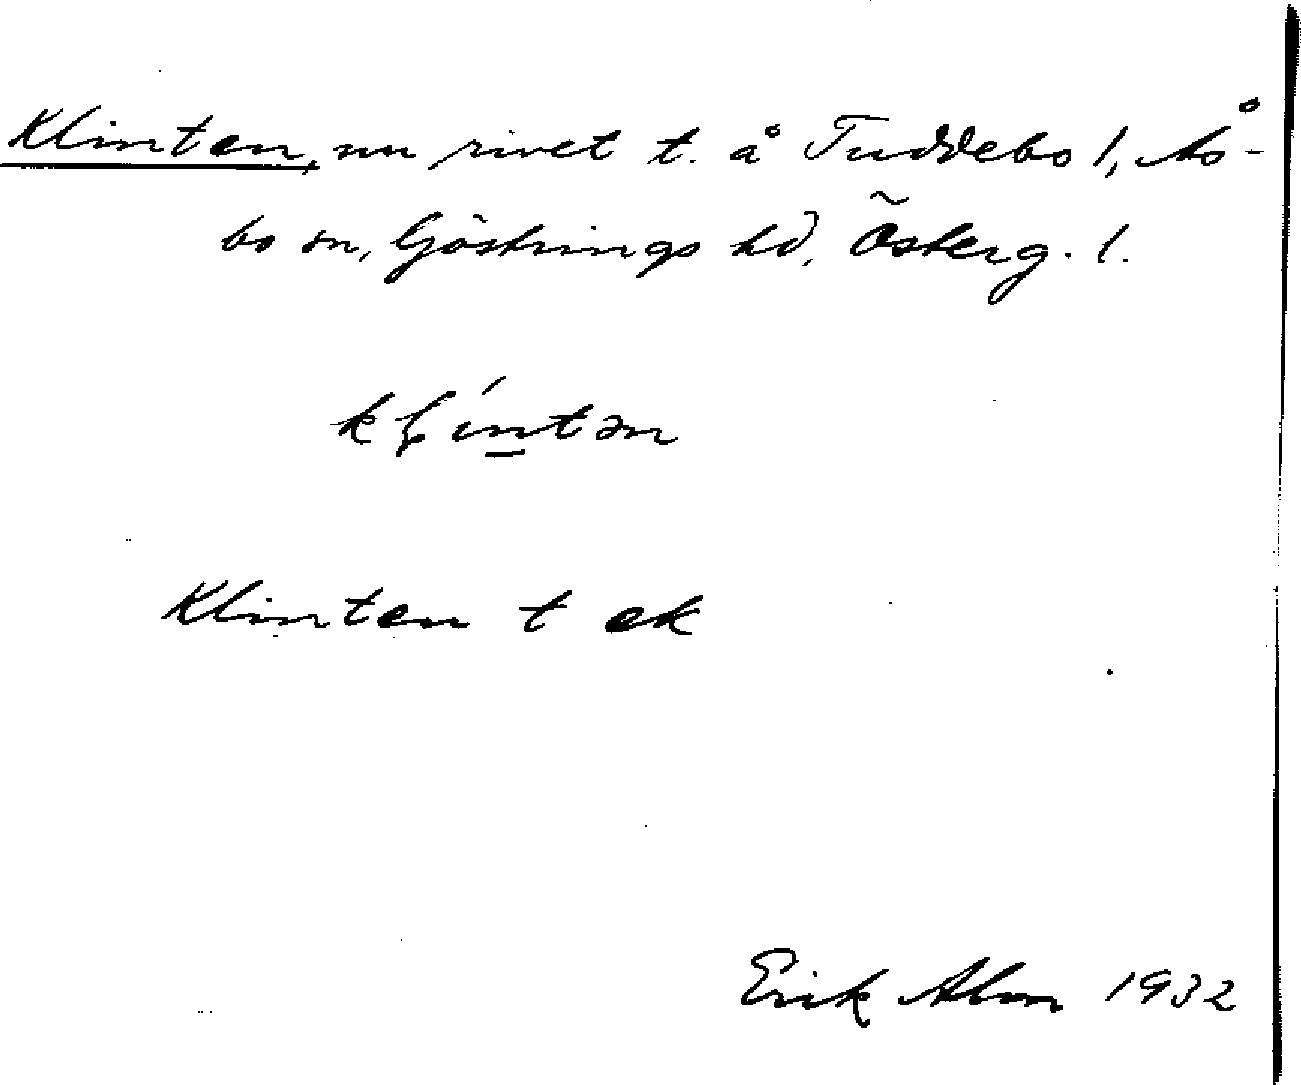 Klinten, nu rivet t. å Tuddebo 1, Ås-
bo sn, Göstrings hd, Österg. l.
kļíntən
Klinten t ek
Erik Alm 1932